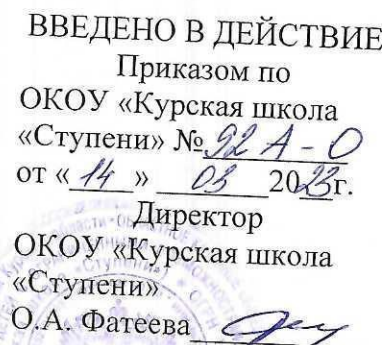 ВВЕДЕНО В ДЕЙСТВИЕ
Приказом по
ОКОУ «Курская школа
«Ступени» № 92 А - О
от « 14 » 03 2023г.
Директор
ОКОУ «Курская школа
«Ступени»
О.А. Фатеева